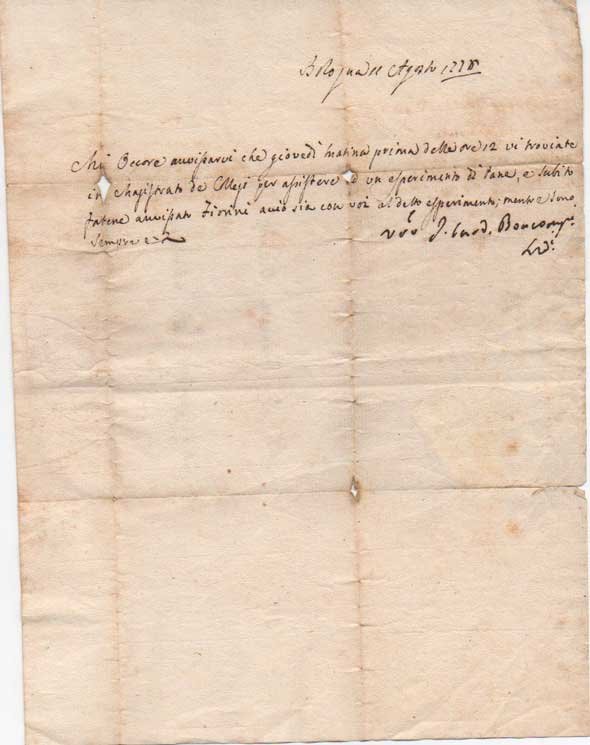 Bologna 11 Agosto 1778
Mi Occore avvisarvi che giovedì matina prima delle ore 12 vi troviate
in Magistrato de Collegi per assistere ad un esperimento di Pane, e subito
fatene avvisato Fiorini acciò sia con voi a detto esperimento; mentre sono
sempre
J. Card. Boncomp.